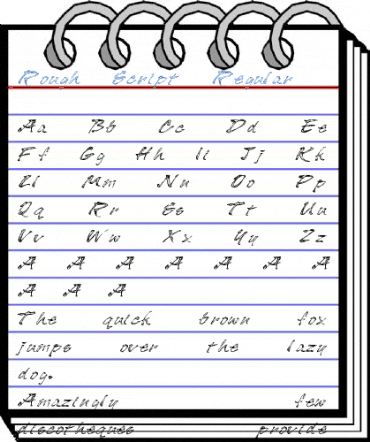 Rough Script Regular
Aa Bb Cc Dd Ee
Ff Gg Hh Ii Jj Kk
Ll Mm Nn Oo Pp
Qq Rr Ss Tt Uu
Vv Ww Xx Yy Zz
A A A A A A A
A A A
The quick brown fox
jumps over the lazy
dog.
Amazingly few
discotheques provide